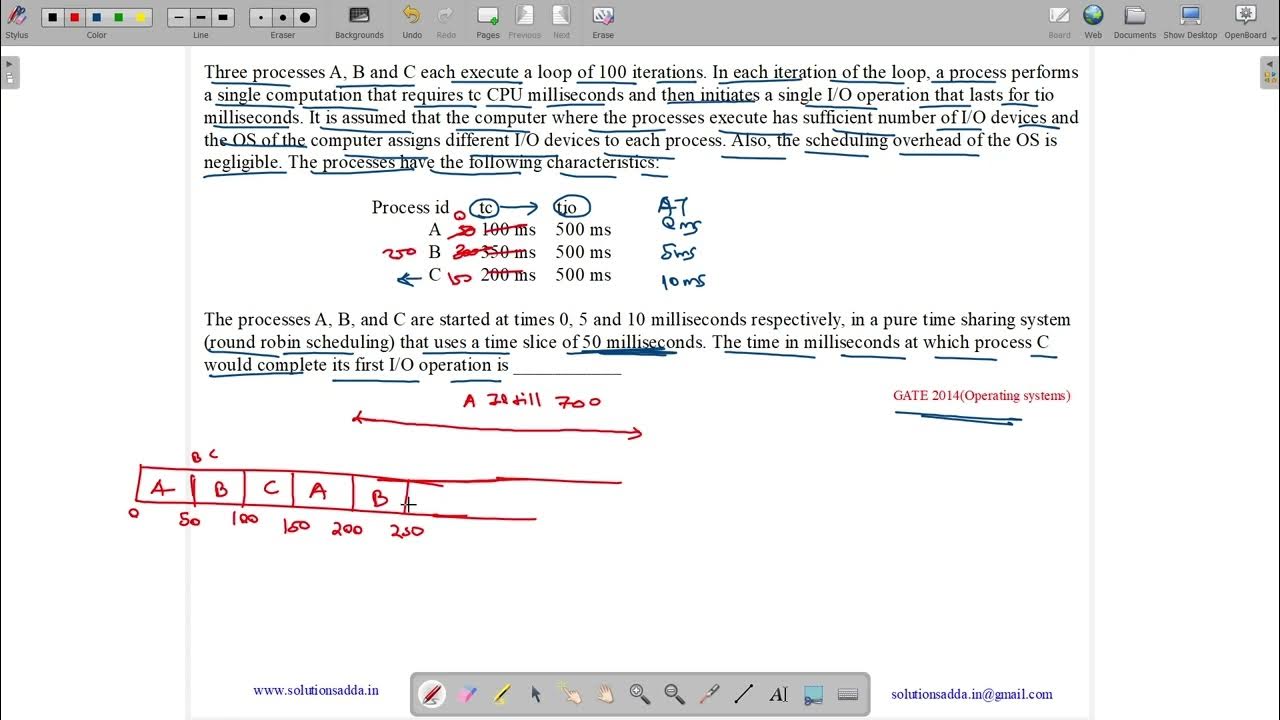 Stylus Color Line Eraser Backgrounds Undo Redo Pages Previous Next Erase Board Web Documents Show Desktop OpenBoard
Three processes A, B and C each execute a loop of 100 iterations. In each iteration of the loop, a process performs
a single computation that requires tc CPU milliseconds and then initiates a single I/O operation that lasts for tio
milliseconds. It is assumed that the computer where the processes execute has sufficient number of I/O devices and
the OS of the computer assigns different I/O devices to each process. Also, the scheduling overhead of the OS is
negligible. The processes have the following characteristics:
Process id tc tio AT
0
A 50 100 ms 500 ms 0ms
250 B 300 350 ms 500 ms 5ms
C 150 200 ms 500 ms 10ms
The processes A, B, and C are started at times 0, 5 and 10 milliseconds respectively, in a pure time sharing system
(round robin scheduling) that uses a time slice of 50 milliseconds. The time in milliseconds at which process C
would complete its first I/O operation is ____________
GATE 2014(Operating systems)
A till 700
B C
A B C A B
0 50 100 150 200 250
www.solutionsadda.in
solutionsadda.in@gmail.com